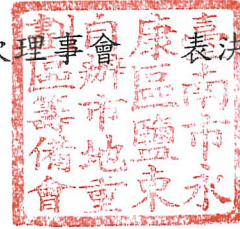 次理事會 表決
臺南市永
康區鹽東
自辦市地重
劃區籌備會